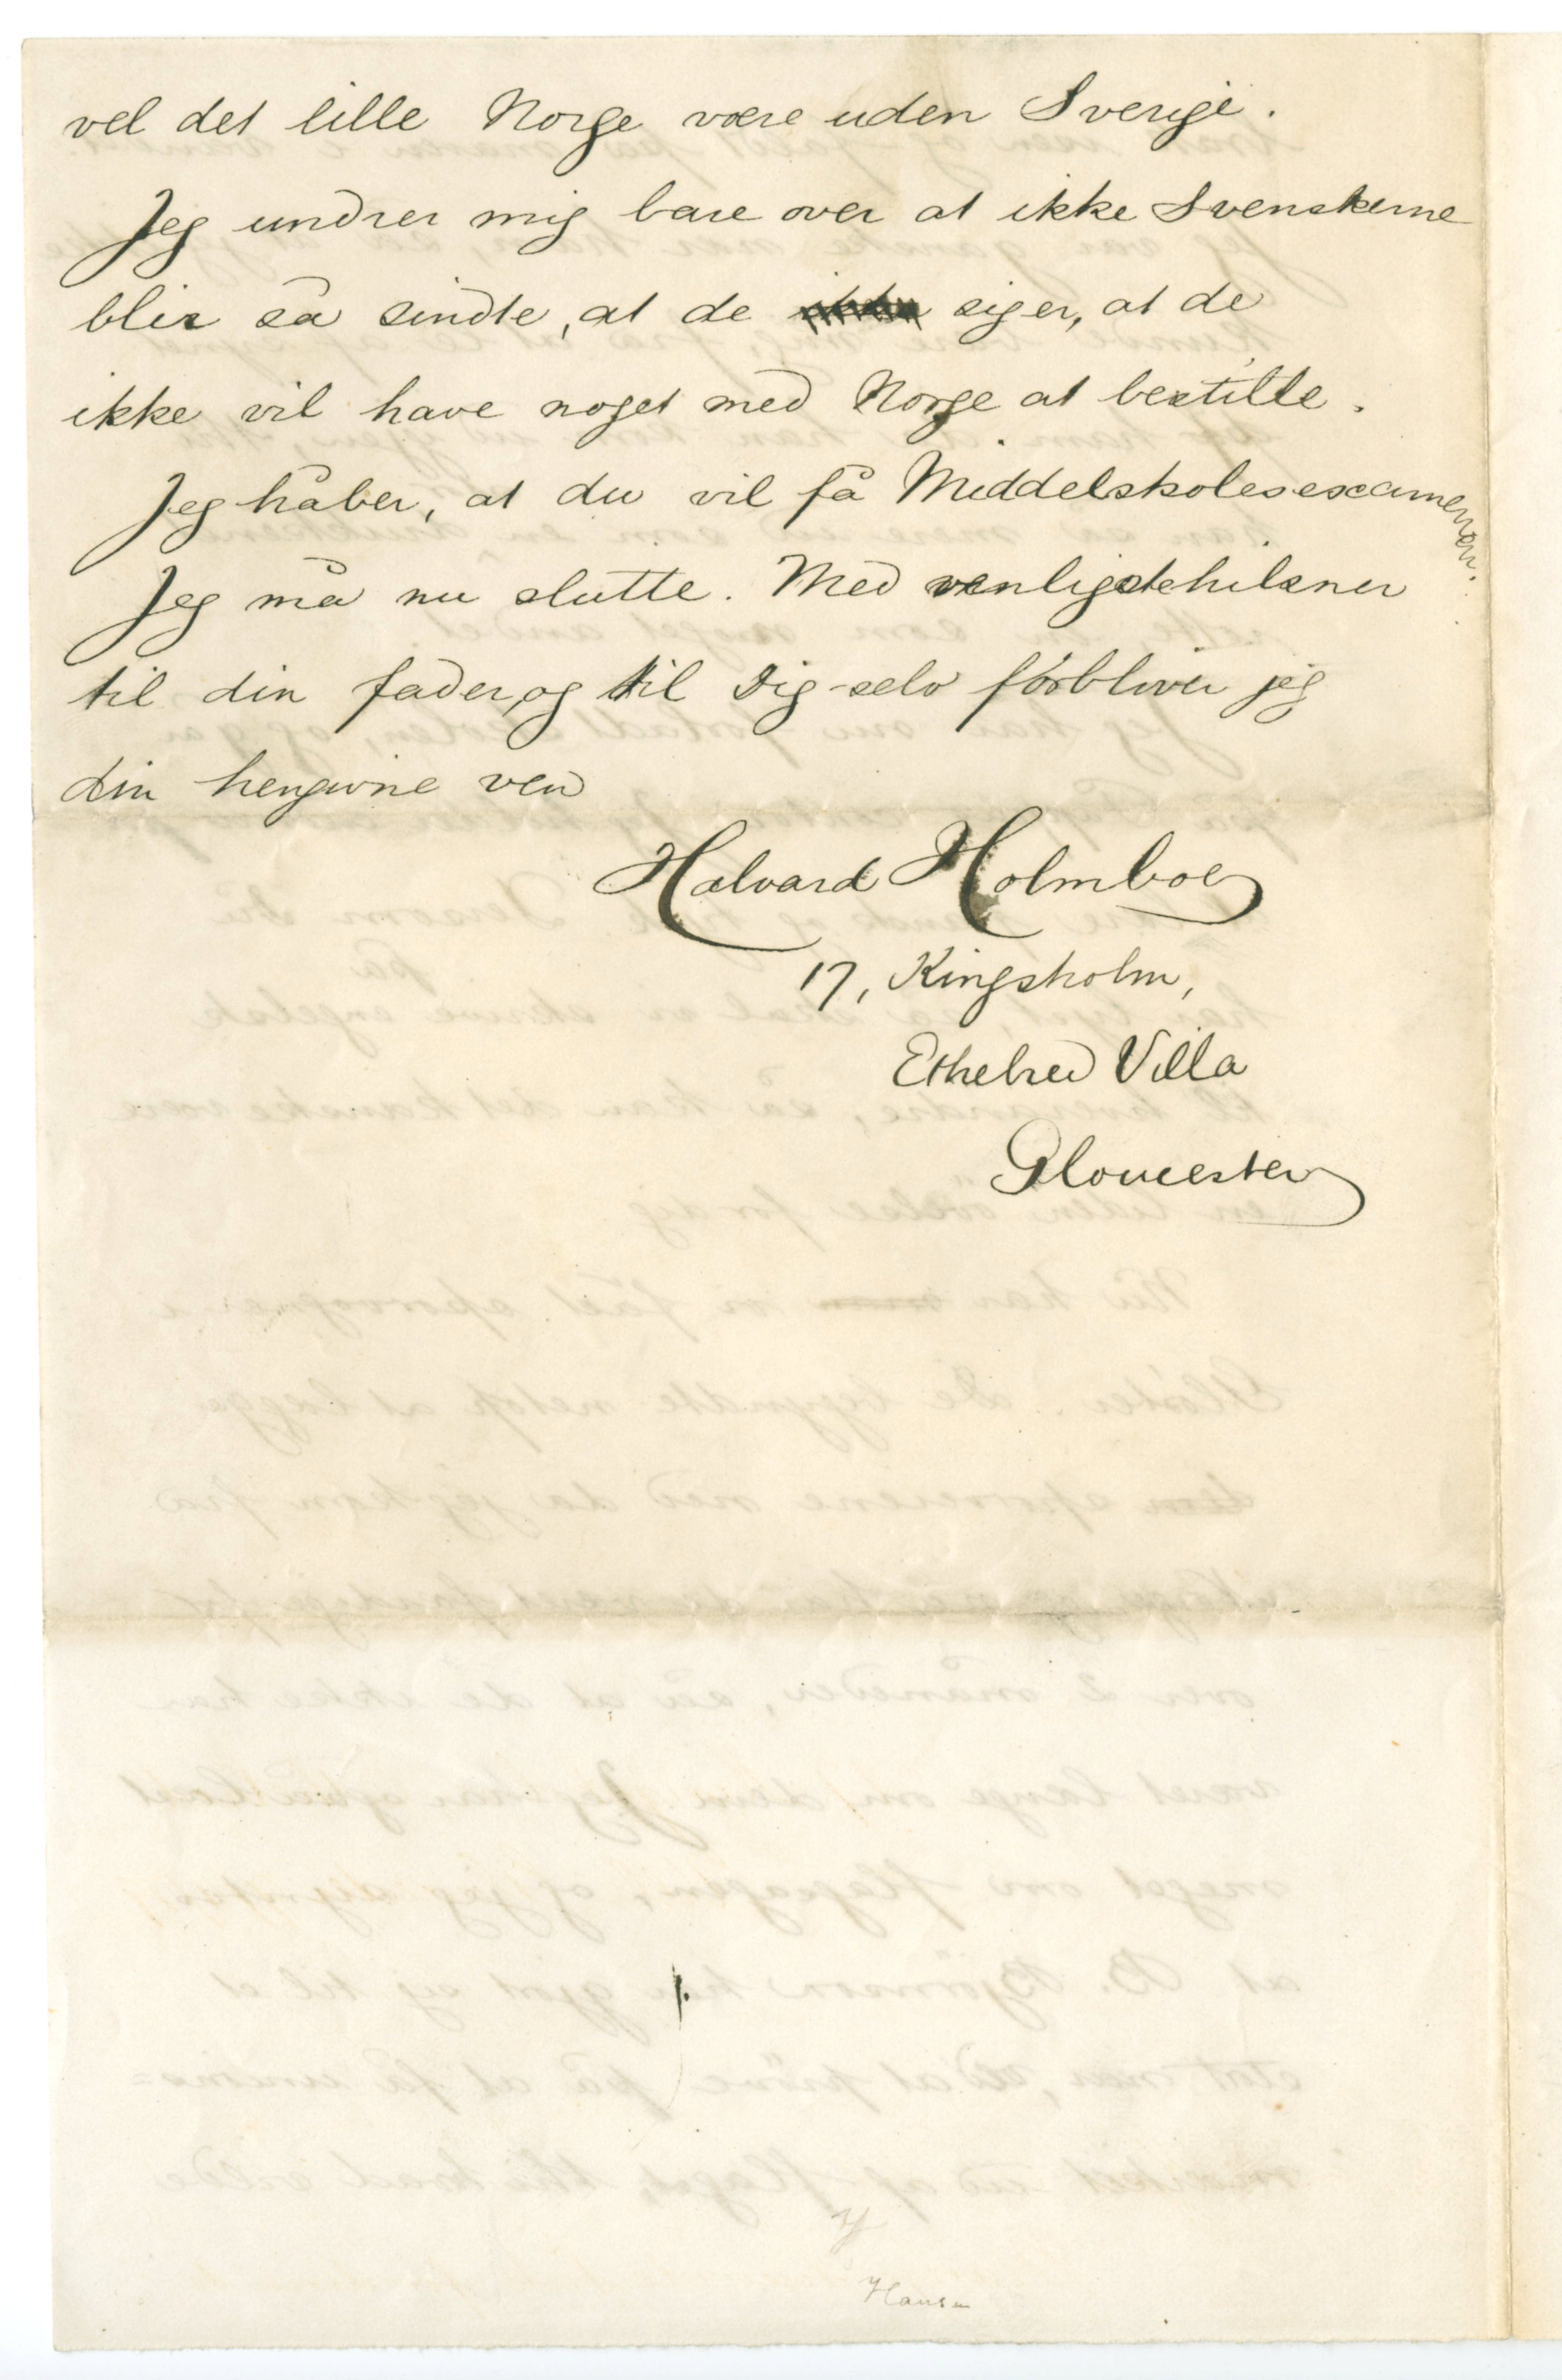 vel det lille Norge være uden Sverige.
Jeg undrer mig bare over at ikke Svenskerne
blir så sindte, at de siger, at de
ikke vil have noget med Norge at bestille.
Jeg håber, at du vil få Middelskolesexamenen.
Jeg må nu slutte. Med venligste hilsner
til din fader, og til dig selv forbliver jeg
din hengivne ven
Halvard Holmboe
17, Kingsholm,
Ethelred Villa
Gloucester
Hansen